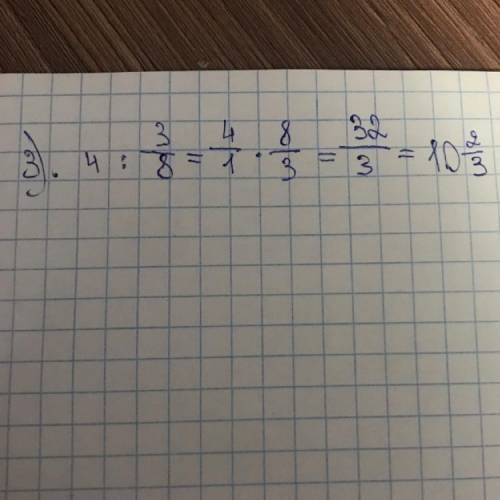 3). 4 : 3/8 = 4/1 · 8/3 = 32/3 = 10 2/3